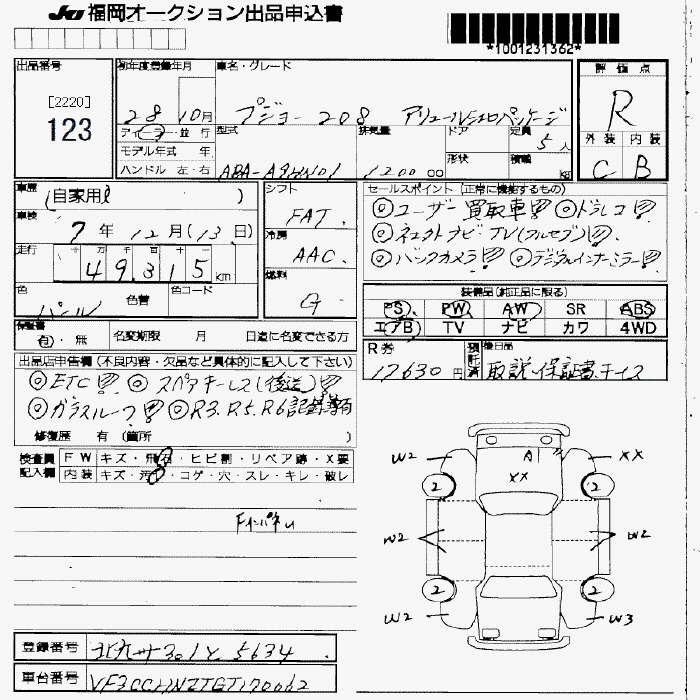 JU 福岡オークション出品申込書
*1001231362*
出品番号
[2220]
123
初年度登録年月
28 10月
車名・グレード
プジョー 208 アリュールシエロパッケージ
評価点
R
外装 内装
C B
ディーラー・並行
モデル年式 年
ハンドル 左・右
型式
排気量
1200 cc
ドア
形状
定員
5人
積載
kg
車歴
(自家用 )
車検
7年 12月(13日)
走行
十 万 千 百 十
49,315 km
色
パール
色替
色コード
シフト
FAT.
冷房
AAC.
燃料
G
セールスポイント (正常に機能するもの)
◎ユーザー買取車!! ◎ドラレコ!!
◎コネクトナビTV(フルセグ)!!
◎バックカメラ!! ◎デジタルインナーミラー!!
装備品(純正品に限る)
PS PW AW SR ABS
エアB TV ナビ カワ 4WD
保証書
有・無
名変期限 月 日迄に名変できる方
R券
12630円
預託済
後日品
取説、保証書
出品店申告欄 (不良内容・欠品など具体的に記入して下さい)
◎ETC!! ◎スペアキーレス(後送)!!
◎ガラスルーフ!! ◎R3.R5.R6記録簿有
修復歴 有 (箇所 )
検査員記入欄
FW キズ・飛石・ヒビ割・リペア跡・X要
内装 キズ・汚れ・コゲ・穴・スレ・キレ・破レ
Fインパネ
W2 A1 XX
XX
2 2
W2 W2
2 2
W2 W3
登録番号
北九州 301 5634
車台番号
VF3CCHNZTGT170062